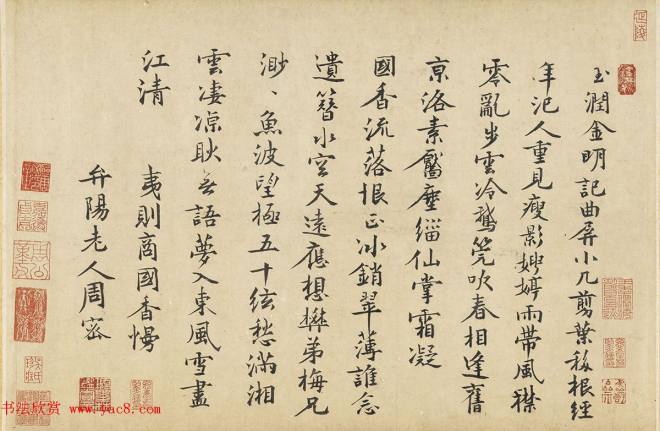 玉潤金明記曲屏小几剪葉移根經
年汜人重見瘦影娉婷雨帶風襟
零亂步雲冷鵞筦吹春相逢舊
京洛素靨塵緇仙掌霜凝
國香流落恨正冰銷翠薄誰念
遺簪水空天遠應想礬弟梅兄
渺、魚波望極五十絃愁滿湘
雲淒凉耿无語夢入東風雪盡
江清
夷則商國香慢
弁陽老人周密
书法欣赏 www.yac8.com